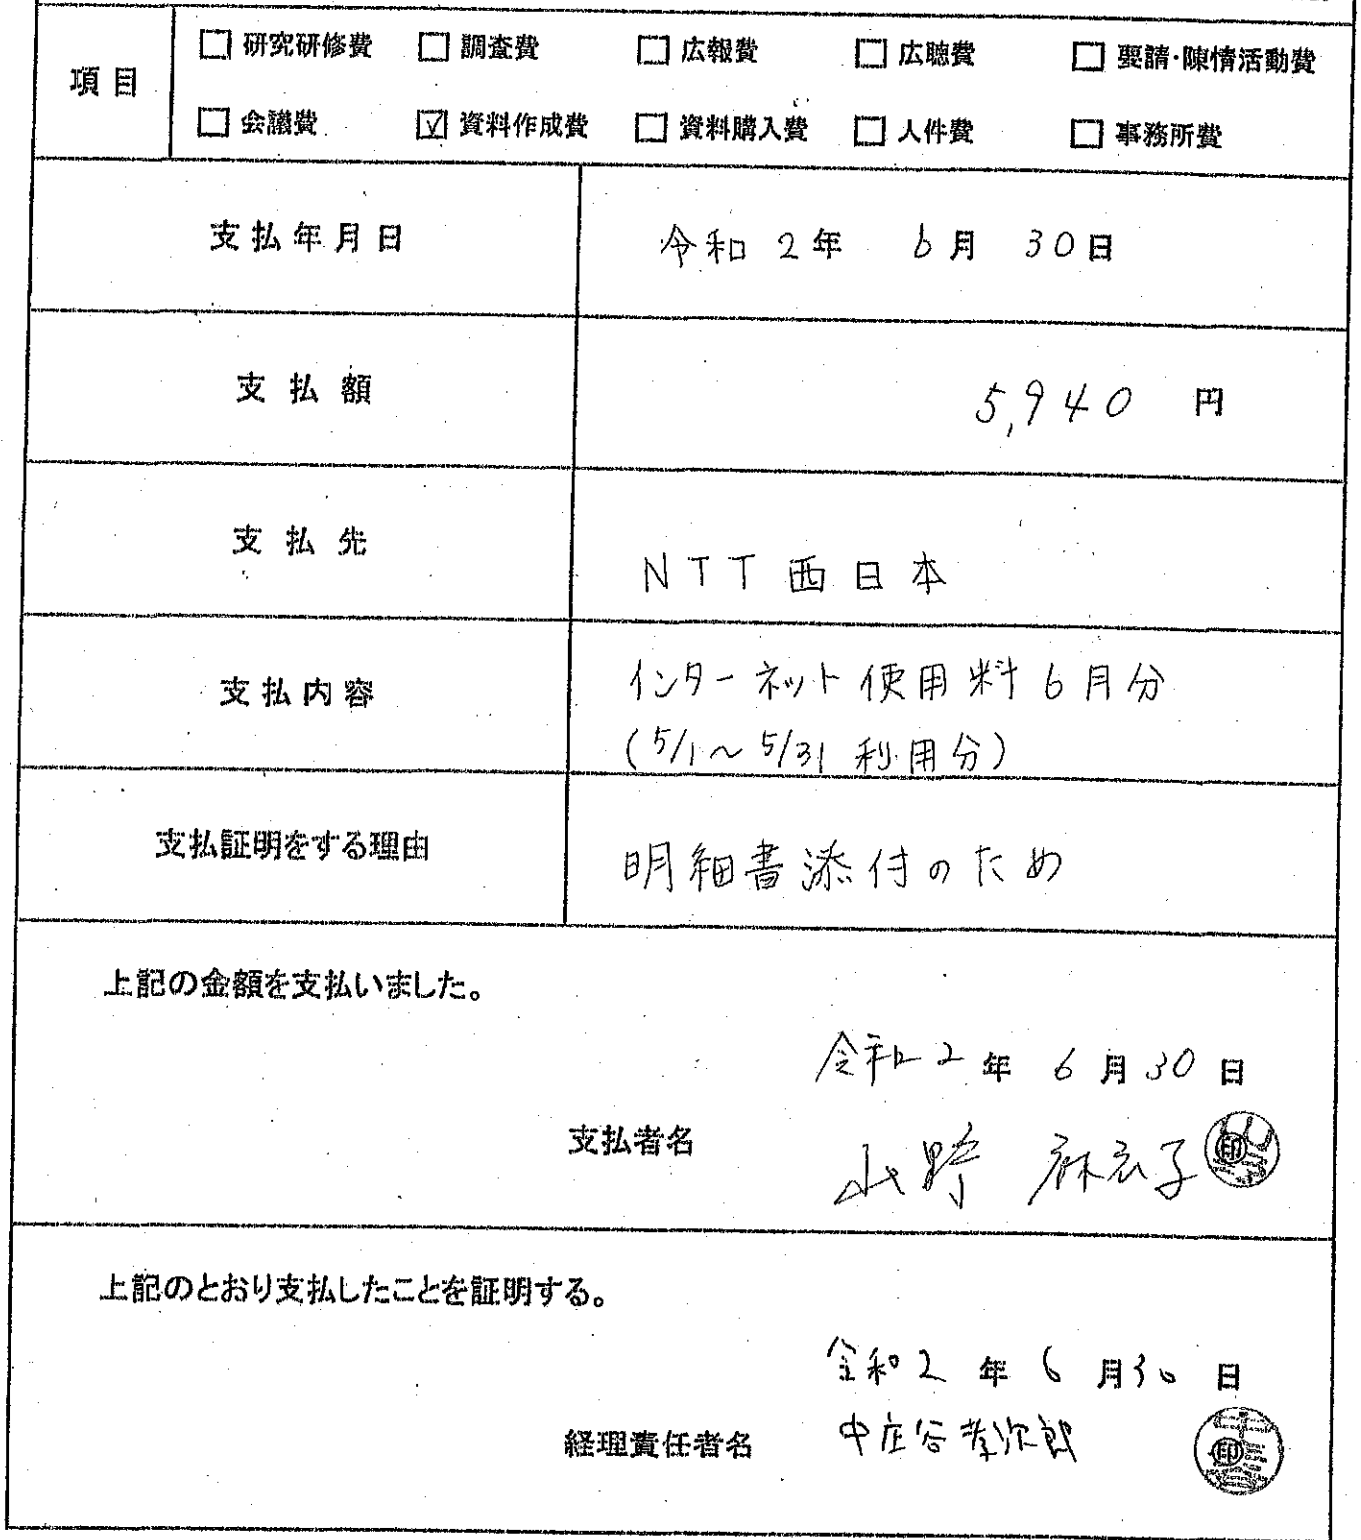 項目
□ 研究研修費 □ 調査費 □ 広報費 □ 広聴費 □ 要請・陳情活動費
□ 会議費 ☑ 資料作成費 □ 資料購入費 □ 人件費 □ 事務所費
支払年月日 令和2年 6月 30日
支払額 5,940 円
支払先 NTT西日本
支払内容 インターネット使用料6月分
(5/1~5/31 利用分)
支払証明をする理由 明細書添付のため
上記の金額を支払いました。
令和2年 6月30日
支払者名 山野 麻衣子 印
上記のとおり支払したことを証明する。
令和2年 6月30日
経理責任者名 中庄谷孝次郎 印